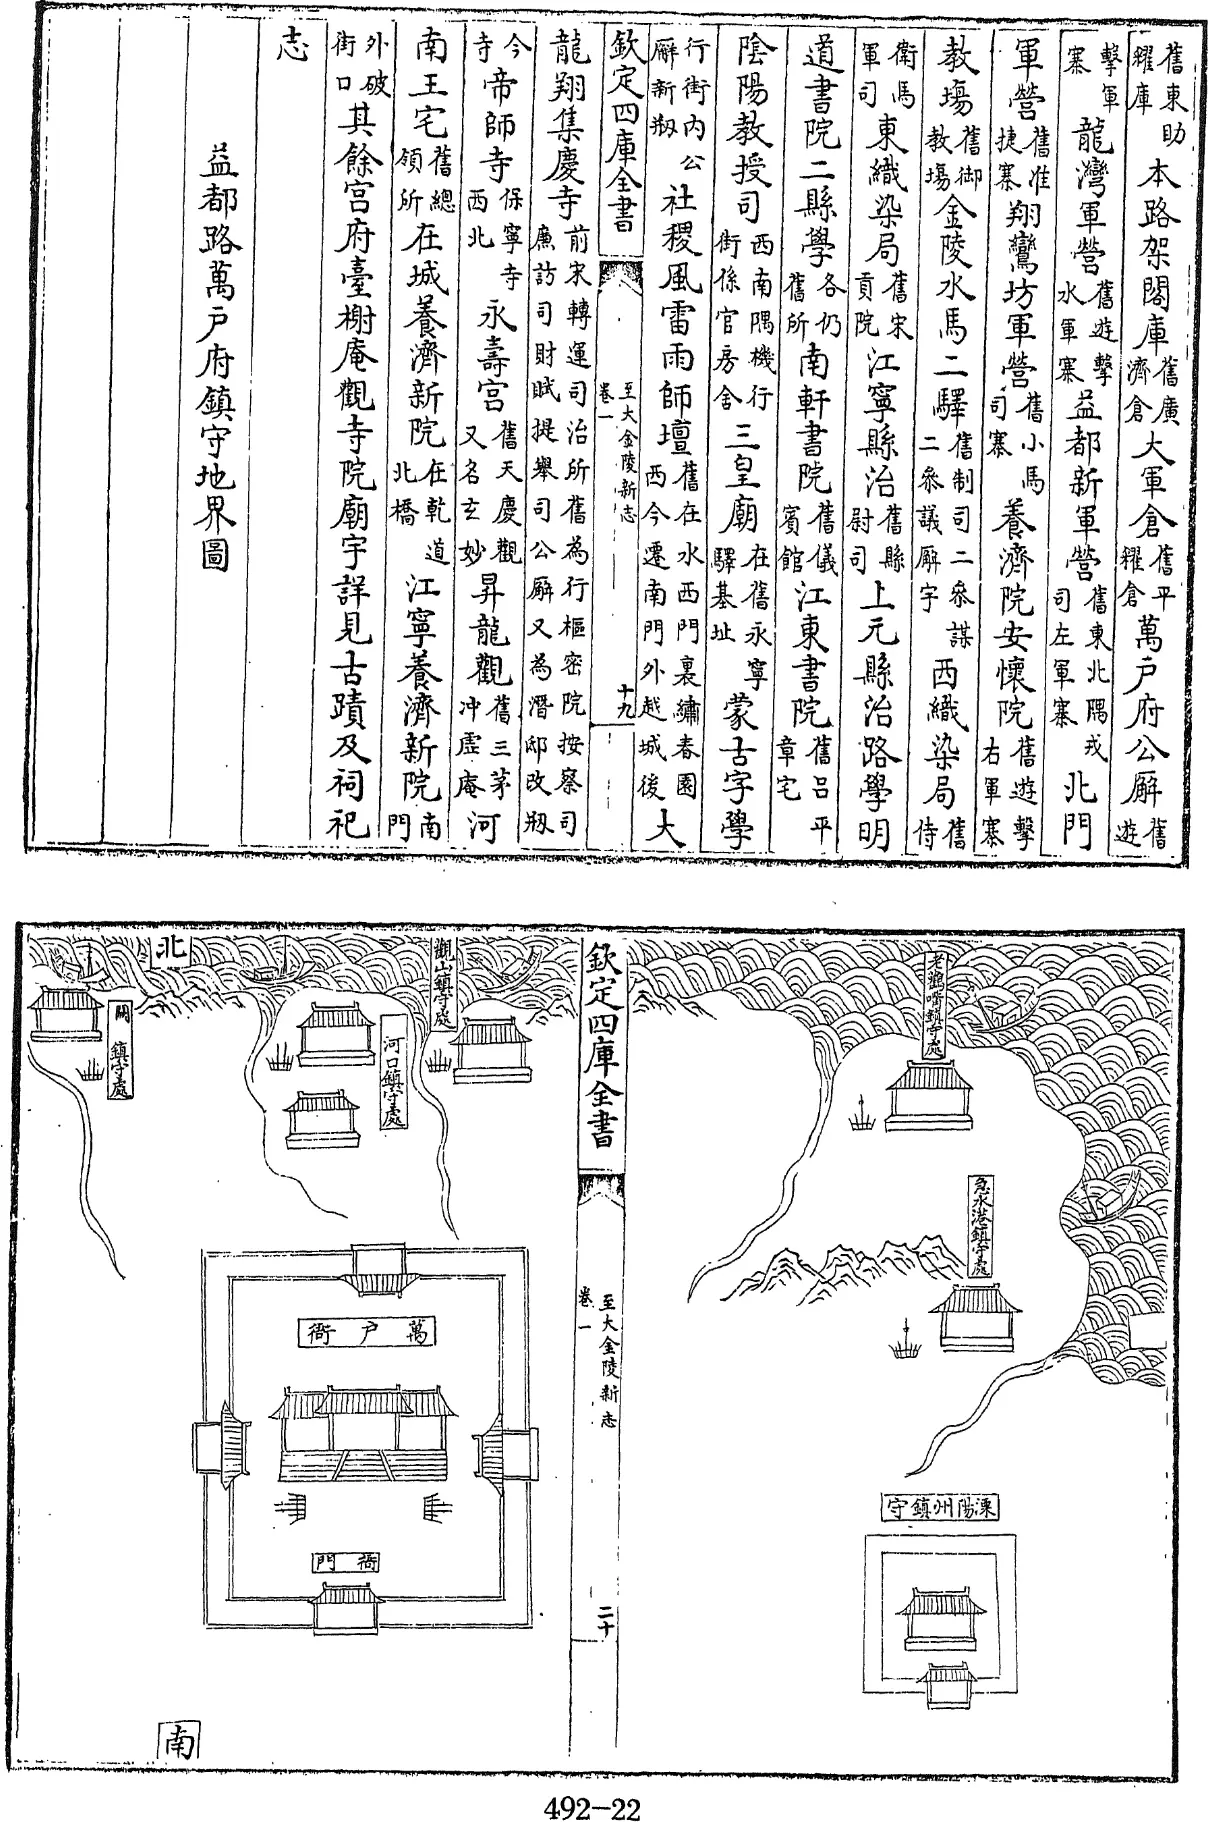 舊東助糴庫本路架閣庫舊廣濟倉大軍倉舊平糴倉萬户府公廨舊遊
擊軍寨龍灣軍營舊遊擊水軍寨益都新軍營舊東北隅戎司左軍寨北門
軍營舊准捷寨翔鸞坊軍營舊小馬司寨養濟院安懷院舊遊擊右軍寨
教塲舊御教塲金陵水馬二驛舊制司二叅謀二叅議廨宇西織染局舊侍
衛馬軍司東織染局舊宋貢院江寧縣治舊縣尉司上元縣治路學明
道書院二縣學各仍舊所南軒書院舊儀賓館江東書院舊吕平章宅
陰陽教授司西南隅機行街係官房舍三皇廟在舊永寧驛基址蒙古字學
行街内公廨新剏社稷風雷雨師壇舊在水西門裏繡春園西今遷南門外越城後大
欽定四庫全書
至大金陵新志
卷一
十九
龍翔集慶寺前宋轉運司治所舊為行樞密院按察司廉訪司財賦提舉司公廨又為潛邸改剏
今寺帝師寺保寧寺西北永壽宫舊天慶觀又名玄妙昇龍觀舊三茅冲虛庵河
南王宅舊總領所在城養濟新院在乾道北橋江寧養濟新院南門
外破街口其餘宫府臺榭庵觀寺院廟宇詳見古蹟及祠祀
志
益都路萬户府鎮守地界圖
老鸛嘴鎮守處
急水港鎮守處
溧陽州鎮守
欽定四庫全書
至大金陵新志
卷一
二十
觀山鎮守處
河口鎮守處
北
闗 鎮守處
萬户衙
衙門
南
492-22